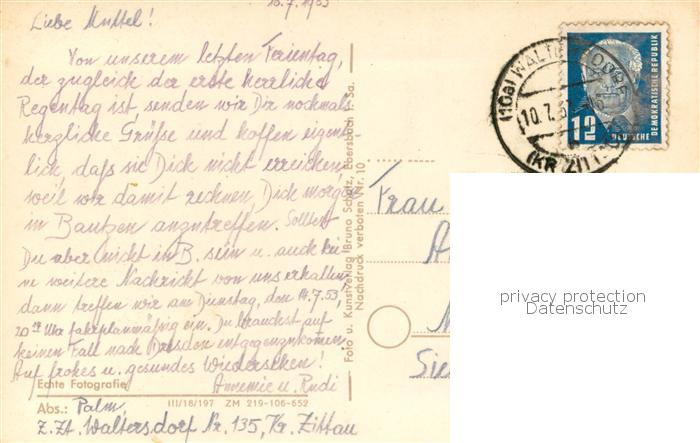 10.7.1953
Liebe Muttel!
Von unserem letzten Ferientag,
der zugleich der erste herrliche
Regentag ist senden wir Dir nochmals
herzliche Grüße und hoffen eigent-
lich, dass sie Dich nicht erreichen,
weil wir damit rechnen, Dich morgen
in Bautzen anzutreffen. Solltest
Du aber nicht in B. sein u. auch kei
ne weitere Nachricht von uns erhalten
dann treffen wir am Dienstag, den 14.7.53,
20 Uhr fahrplanmäßig ein. Du brauchst auf
keinen Fall nach Dresden entgegenzukommen.
Auf frohes u. gesundes Wiedersehen!
Annemie u. Rudi
Echte Fotografie
III/18/197 ZM 219-106-652
Abs.: Palm,
z. Zt. Waltersdorf Nr. 135, Kr. Zittau
Foto u. Kunstverlag (Bruno Scholz, Ebersbach i. Sa.
Nachdruck verboten Nr. 10
(10a) WALTERSDORF
10.7.53
(KR ZITT
12
DEUTSCHE
DEMOKRATISCHE REPUBLIK
Frau
privacy protection
Datenschutz